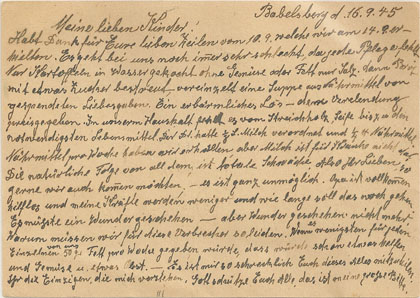 Babelsberg d. 16.9.45
Meine lieben Kinder!
Habt Dank für Eure lieben Zeilen vom 10.9. welche wir am 14.9. er-
hielten. Es geht bei uns noch immer sehr schlecht, da jede
Nur Kartoffeln in Wasser gekocht ohne Gemüse oder Fett nur Salz, dann Brot
mit etwas Zucker bestreut – vereinzelt eine Suppe aus Nährmittel von
spendenden Liebesgaben. Ein erbärmliches Los – dem Verelendung
preisgegeben. In unserm Haushalt fehlt es vom Streichholz Seife bis zu den
notwendigsten Lebensmittel. hatte ½ l Milch verordnet und Nährmittel
Nährmittel pro Woche haben wir erhalten aber Milch ist für Kranke nicht
Die natürliche Folge von all dem ist totale Schwäche also Ihr Lieben, so
gerne wir auch kommen möchten, – es ist ganz unmöglich. Opa ist vollkommen
hilflos und meine Kräfte werden weniger und wie lange soll das noch gehen
Es müsste ein Wunder geschehen – aber Wunder geschehen nicht mehr.
Warum müssen wir für diese Verbrecher so leiden. Wenn wenigstens für jeden
Einzelnen 50 gr Fett pro Woche gegeben würde, das würde schon etwas helfen
und Gemüse u. etwas Obst. – Es ist mir so schrecklich Euch dieses Alles mitzuteilen
Ihr die Einzigen, die mich verstehen. Gott schütze Euch Alle das ist meine